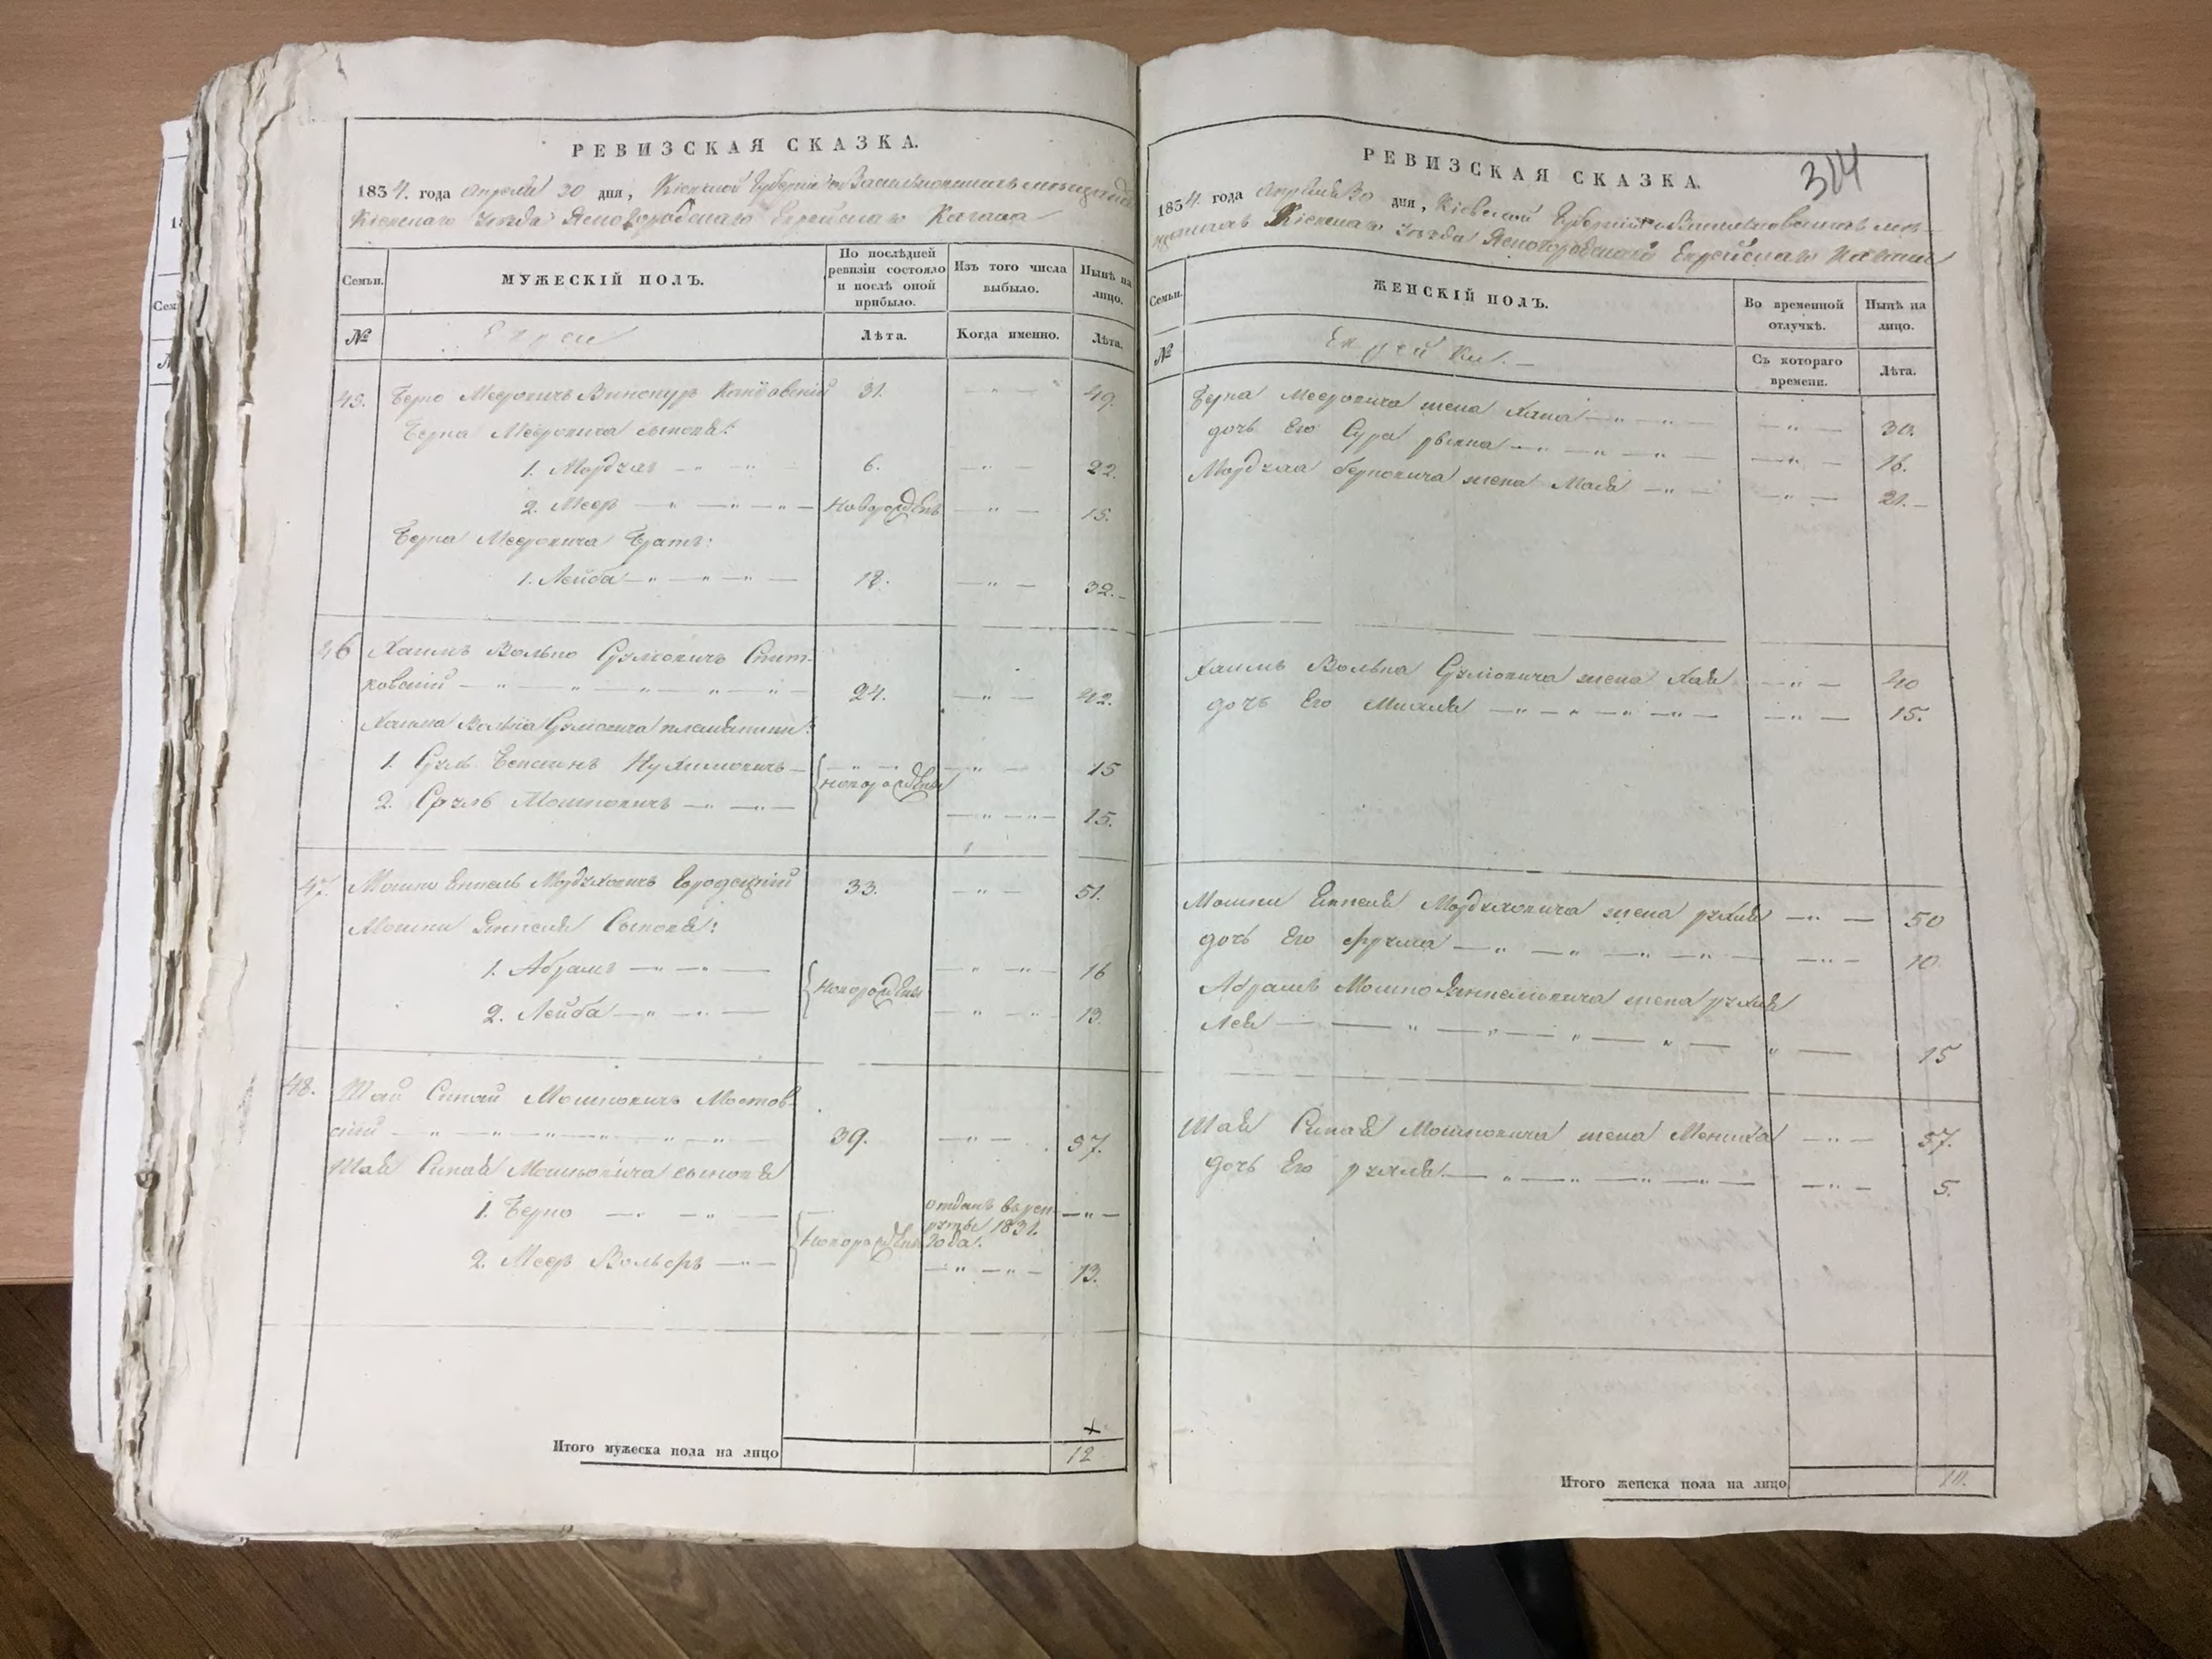 РЕВИЗСКАЯ СКАЗКА.
1834. года Апреля 30 дня, Кіевской Губерніи
Кіевскаго Уезда Ясногородскаго Еврейскаго Кагала
Семьи.
МУЖЕСКІЙ ПОЛЪ.
По послѣдней ревизіи состояло и послѣ оной прибыло.
Изъ того числа выбыло.
Нынѣ на лицо.
№
Евреи
Лѣта.
Когда именно.
Лѣта.
45. Берко Мееровичъ Винокуръ 31. 49.
Берка Мееровича сыновя:
1. Мордхай 6. 22.
2. Меер Новорожденъ 15.
Берка Мееровича Братъ:
1. Лейба 18. 32.
46 Хаимъ Волько Сруліовичъ Снит-
ковскій 24. 42.
Хаима Волька Сруліовича племяники:
1. Сруль Бенсионъ Нухимовичъ 15
новорождены
2. Сруль Мошковичъ 15.
47. Мошко Янкель Мордуховичъ Городецкій 33. 51.
Мошки Янкеля Сыновя:
1. Абрамъ 16
Новорождены
2. Лейба 13.
48. Шая Синай Мошковичъ Мостов-
скій 39. 57.
Шая Синая Мошковича сыновя
1. Берко отданъ в рек-
руты 1831.
Новорождены года.
2. Меер Вольфъ 13.
Итого мужеска пола на лицо 12
РЕВИЗСКАЯ СКАЗКА.
314
1834. года Апреля 30 дня, Кіевской Губерніи
Кіевскаго Уезда Ясногородскаго Еврейскаго Кагала
Семьи.
ЖЕНСКІЙ ПОЛЪ.
Во временной отлучкѣ.
Нынѣ на лицо.
№
Еврейки.
Съ котораго времени.
Лѣта.
Берка Мееровича жена Хана 30.
дочь Его Сура рывка 16.
Мордхая берковича жена Маля 21.
Хаимъ Волька Сруліовича жена Хая 40
дочъ Его 15.
Мошки Янкеля Мордуховича жена рухля 50
дочъ Его фрума 10
Абрамъ Мошко Янкелиовича жена рухля
Лея 15
Шая Синая Мошковича жена Менуха 57.
дочъ Его рухля 5.
Итого женска пола на лицо 10.